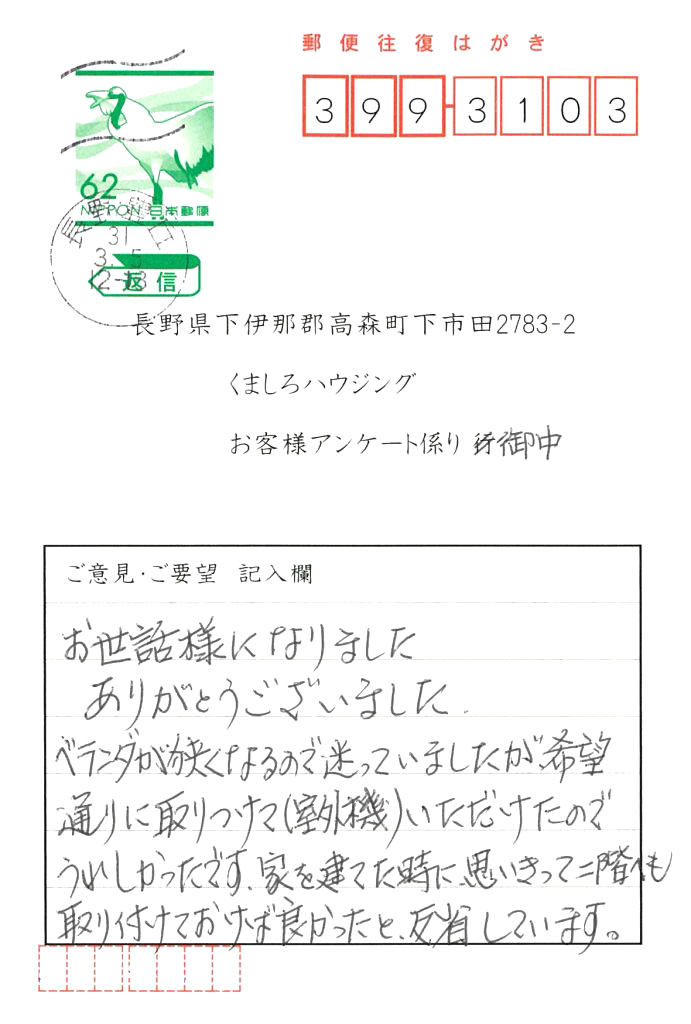 郵便往復はがき
399-3103
62
NIPPON 日本郵便
長野
31
3. 5
12-18
返信
長野県下伊那郡高森町下市田2783-2
くましろハウジング
お客様アンケート係り 行御中
ご意見・ご要望 記入欄
お世話様になりました
ありがとうございました.
ベランダが狭くなるので迷っていましたが、希望
通りに取りつけて(室外機)いただけたので
うれしかったです、家を建てた時に、思いきって二階にも
取り付けておけば良かったと、反省しています。